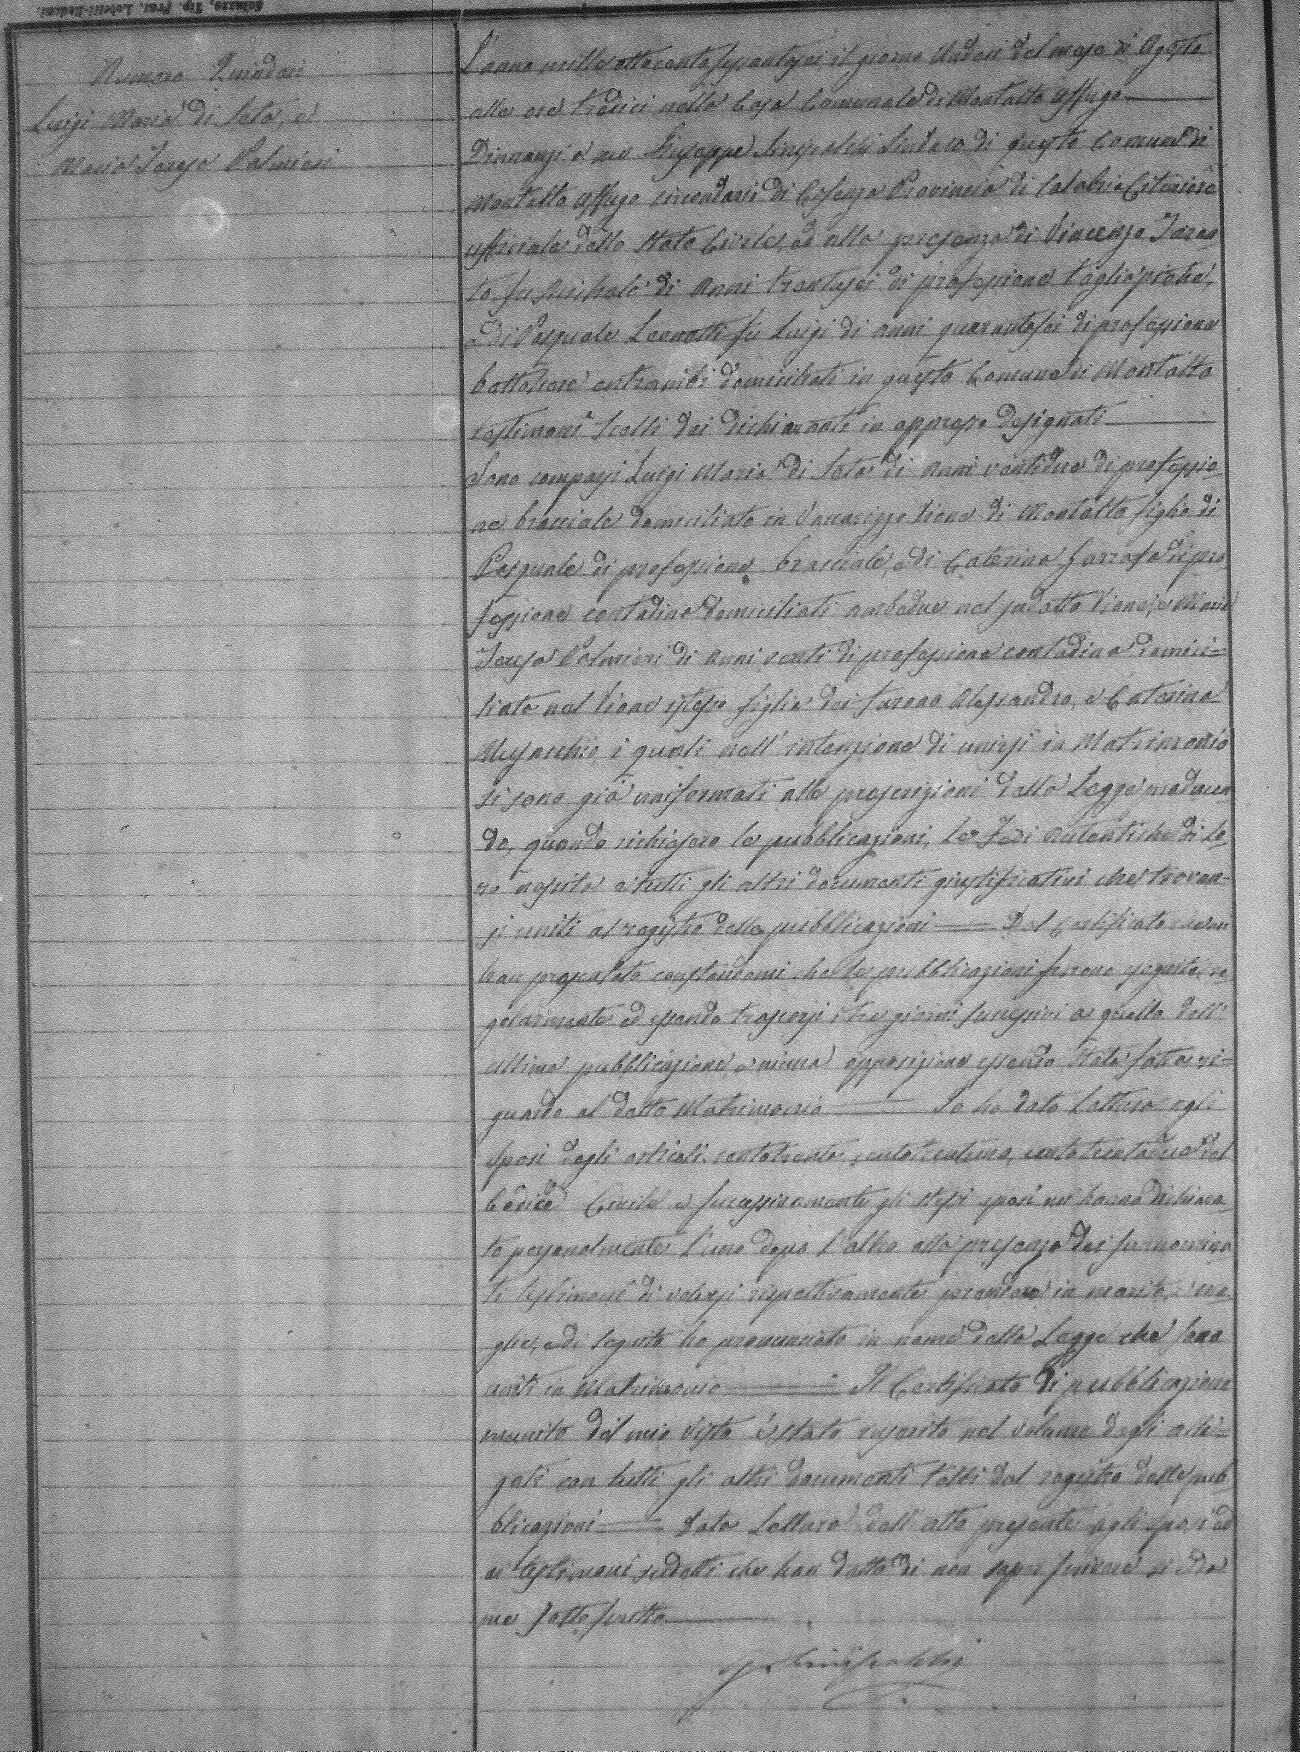 Numero Quindici
Luigi Maria di Seta, e
Maria Teresa Palmieri
L'anno mille ottocento settantasei, il giorno undeci del mese di Agosto
alle ore tredici nella Casa Comunale di Montalto Uffugo
Dinnanzi a me Giuseppe Sindaco di questo Comune di
Montalto Uffugo circondario di Cosenza Provincia di Calabria Citeriore
ufficiale dello Stato Civile, ed alla presenza di Vincenzo
fu di anni trentasei di professione
e di Pasquale fu Luigi di anni quarantasei di professione
bottaro entrambi domiciliati in questo Comune di Montalto
testimoni scelti dai dichiaranti in appresso designati
Sono comparsi Luigi Maria di Seta di anni ventidue di professio-
ne bracciale domiciliato in Vaccarizzo di Montalto figlio di
Pasquale di professione bracciale, e di Caterina di pro
fessione contadina domiciliati ambedue nel sudetto e Maria
Teresa Palmieri di anni venti di professione contadina domici-
liata nel stesso figlia dei furono Alessandro, e Caterina
i quali nell'intenzione di unirsi in Matrimonio
si sono già uniformati alle prescrizioni della Legge
quando richiesero le pubblicazioni, le Fedi autentiche di lo-
ro nascita e tutti gli altri documenti giustificativi che trovan-
si uniti al registro delle pubblicazioni Dal Certificato
han presentato constandomi che le pubblicazioni furono eseguite re
golarmente ed essendo trascorsi i tre giorni successivi a quello dell'
ultima pubblicazione, e niuna opposizione essendo stata fatta ri-
guardo al detto Matrimonio Io ho dato lettura agli
sposi degli articoli centotrenta, centotrentuno, centotrentadue del
Codice Civile e successivamente gli stessi sposi mi hanno dichiara-
to personalmente l'uno dopo l'altro alla presenza dei sunnomina
ti testimoni di volersi rispettivamente prendere in marito, e mo-
glie, e di seguito ho pronunciato in nome della Legge che sono
uniti in Matrimonio Il Certificato di pubblicazione
munito del mio visto è stato inserito nel volume degli alle-
gati con tutti gli altri documenti tolti dal registro delle pub
blicazioni Data Lettura dell'atto presente agli sposi ed
ai testimoni sudetti che han detto di non saper scrivere si è da
me sottoscritto